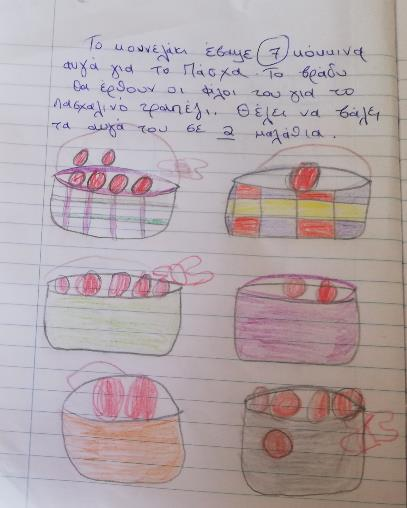 Το κουνελάκι έβαψε 7 κόκκινα
αυγά για το Πάσχα. Το βράδυ
θα έρθουν οι φίλοι του για το
πασχαλινό τραπέζι. Θέλει να βάλει
τα αυγά του σε 2 καλάθια.